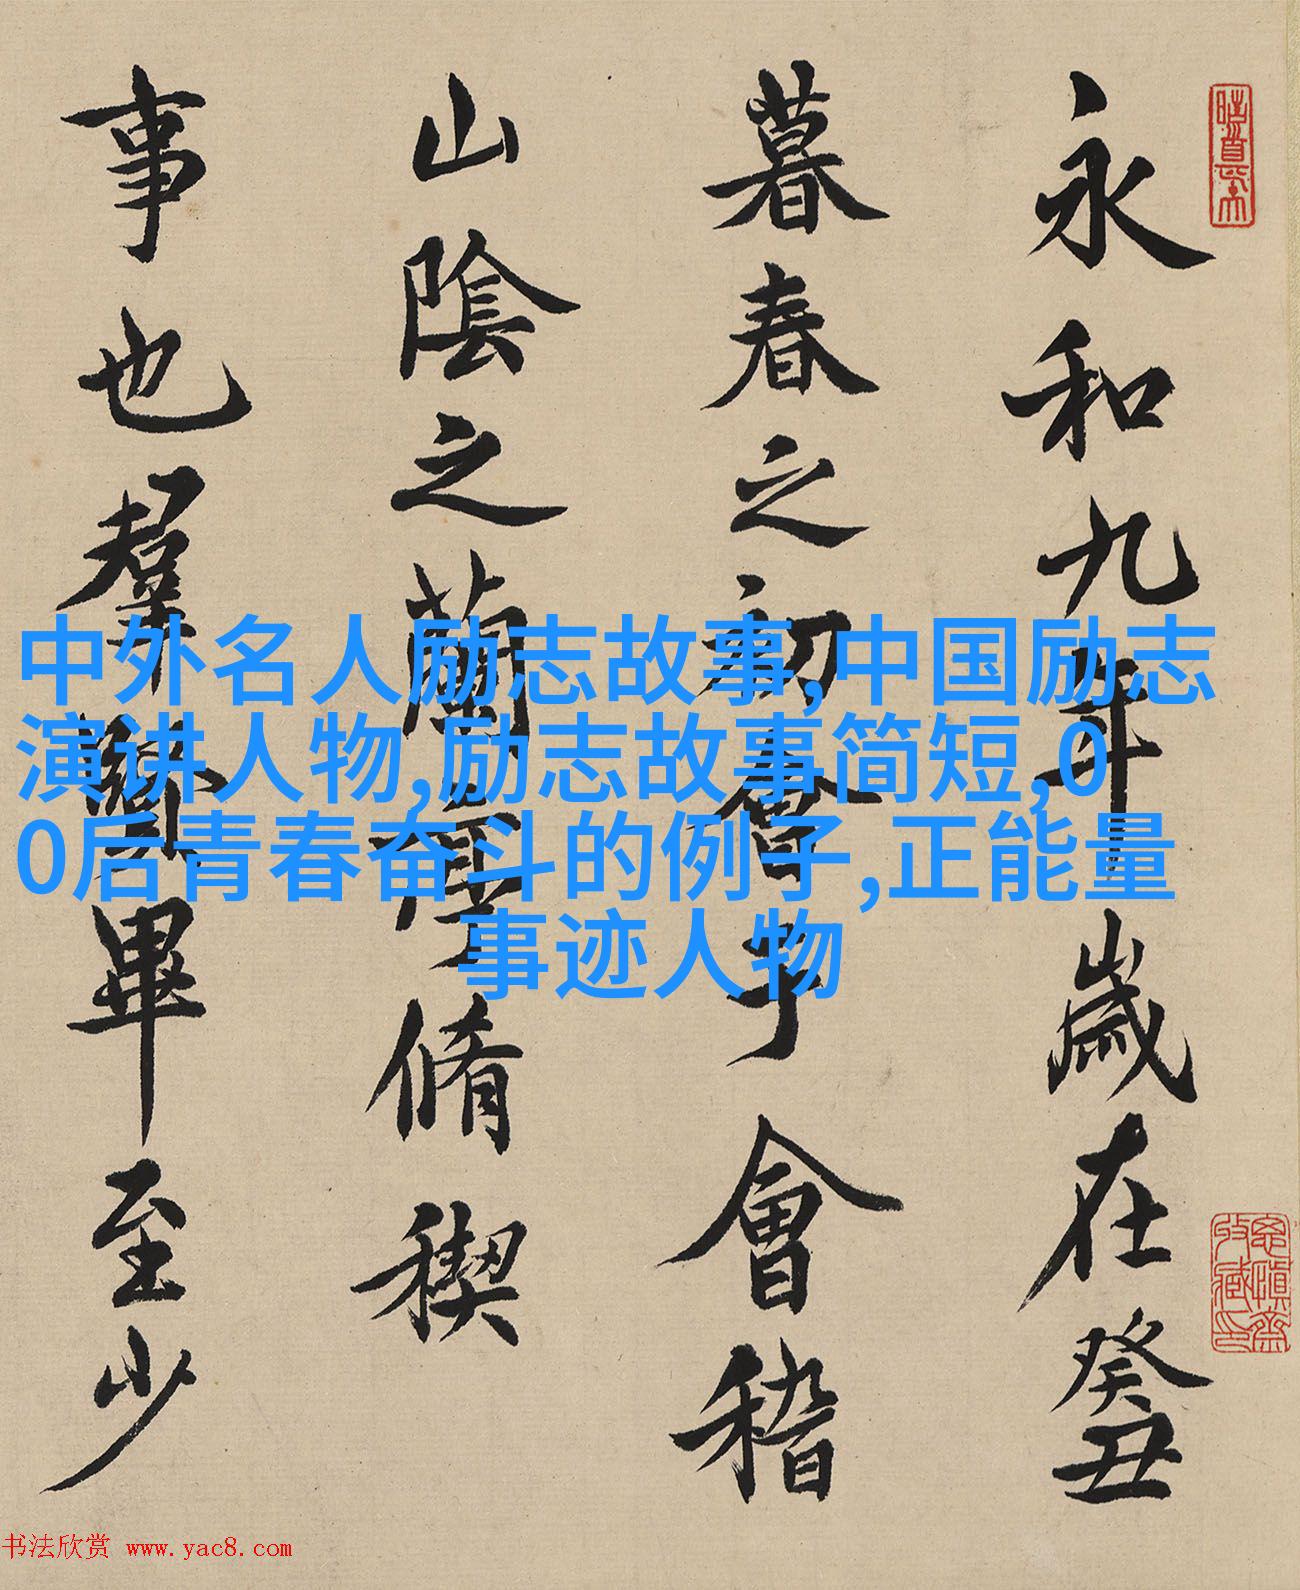 永和九年歲在癸丑
暮春之初會于會稽
山陰之蘭亭脩稧
事也羣賢畢至少
中外名人励志故事,中国励志
演讲人物,励志故事简短,0
0后青春奋斗的例子,正能量
事迹人物
书法欣赏 www.yac8.com